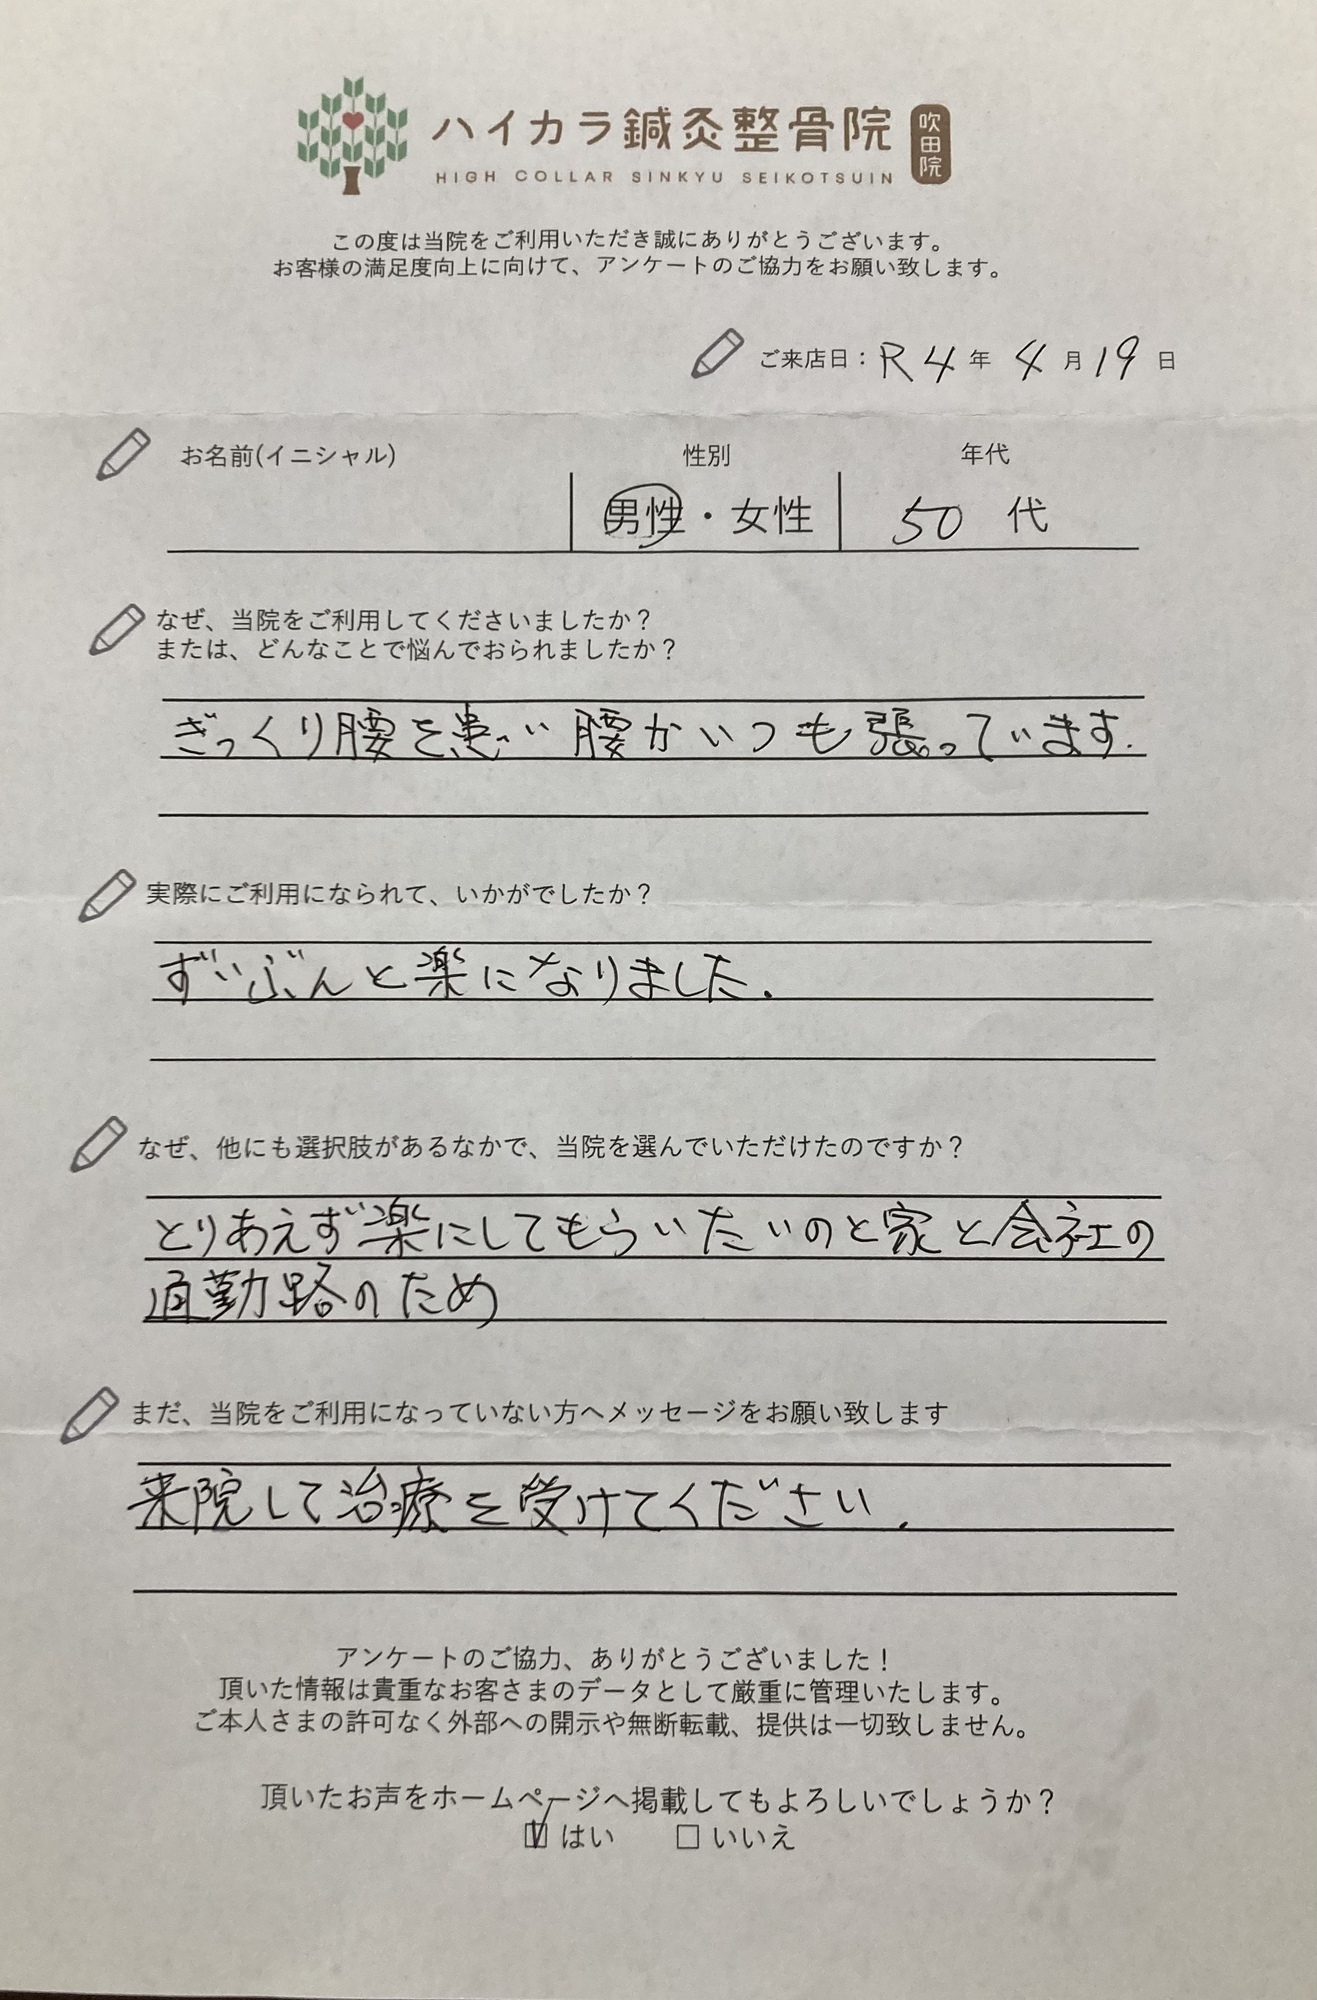 ハイカラ鍼灸整骨院 吹田院
HIGH COLLAR SINKYU SEIKOTSUIN
この度は当院をご利用いただき誠にありがとうございます。
お客様の満足度向上に向けて、アンケートのご協力をお願い致します。
ご来店日：R4年 4月19日
お名前(イニシャル) 性別 年代
男性・女性 50代
なぜ、当院をご利用してくださいましたか？
または、どんなことで悩んでおられましたか？
ぎっくり腰を患い腰かいつも張っています.
実際にご利用になられて、いかがでしたか？
ずいぶんと楽になりました.
なぜ、他にも選択肢があるなかで、当院を選んでいただけたのですか？
とりあえず楽にしてもらいたいのと家と会社の
通勤路のため
まだ、当院をご利用になっていない方へメッセージをお願い致します
来院して治療を受けてください.
アンケートのご協力、ありがとうございました！
頂いた情報は貴重なお客さまのデータとして厳重に管理いたします。
ご本人さまの許可なく外部への開示や無断転載、提供は一切致しません。
頂いたお声をホームページへ掲載してもよろしいでしょうか？
☑ はい □ いいえ